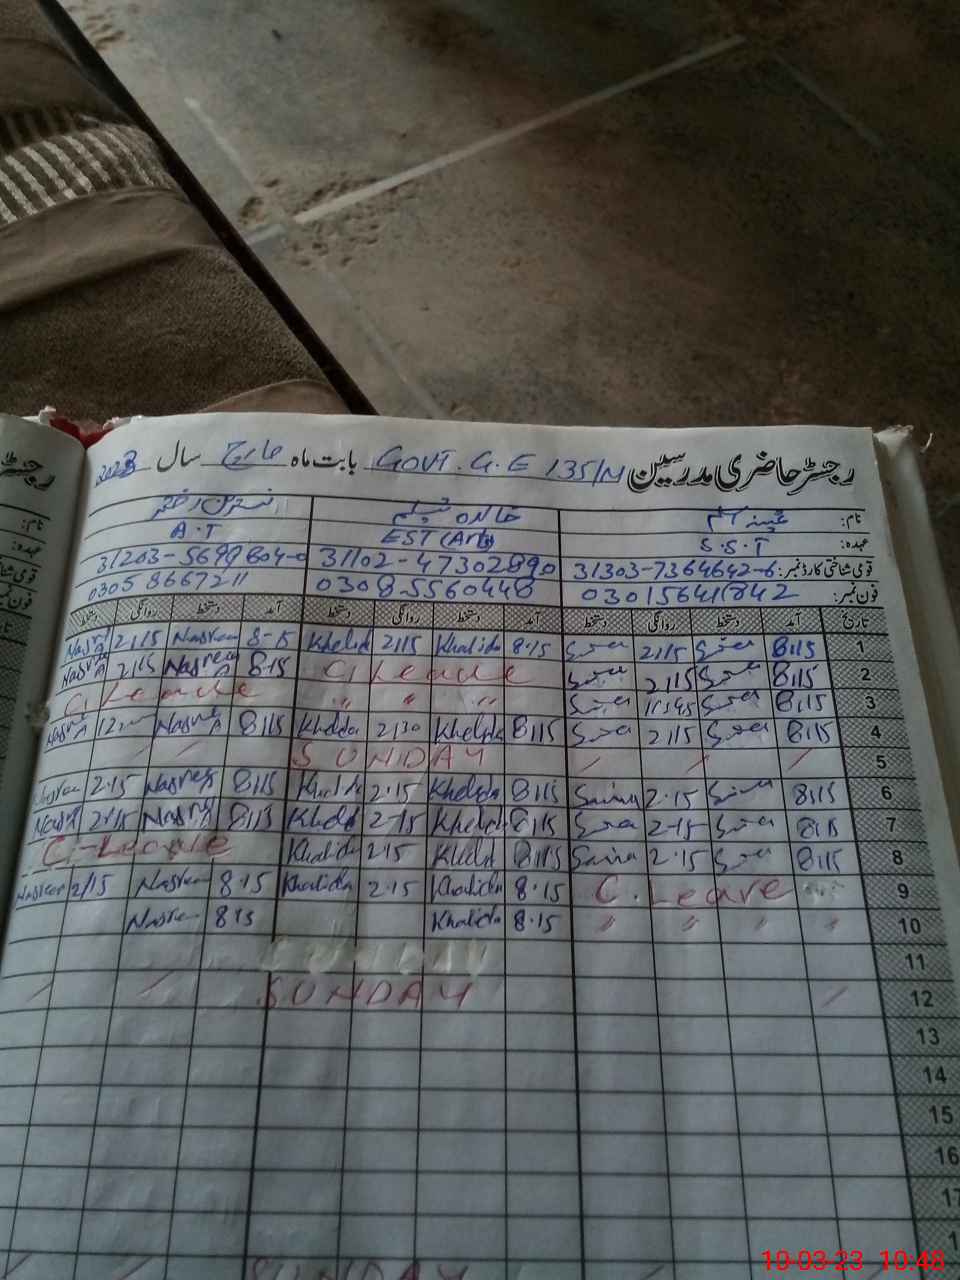 رجسٹر حاضری مدرسین GOVT. G. E 135/N بابت ماہ مارچ سال 2023
نام: خالدہ تبسم نسرین اختر
عہدہ: S.S.T EST (Art) A.T
قومی شناختی کارڈ نمبر: 31303-7364642-6 31102-47302890 31203-5699604-0
فون نمبر: 03015641842 03085560448 03058667211
تاریخ آمد دستخط روانگی دستخط آمد دستخط روانگی دستخط آمد دستخط روانگی دستخط
1 8:15 2:15 8:15 Khalida 2:15 Khalida 8-15 Nasreen 2:15
2 8:15 2:15 C. Leave 8:15 Nasreen 2:15
3 8:15 〃 〃 〃 C. Leave
4 8:15 2:15 8:15 Khalida 2:30 Khalida 8:15
5 / / / SUNDAY / /
6 8:15 2.15 Saima 8:15 Khalida 2.15 8:15 2.15
7 8:15 2-15 8:15 2-15 8:15 2:15
8 8:15 2.15 Saima 8:15 2.15 Khalida C. Leave
9 C. Leave 8.15 Khalida 2.15 Khalida 8.15 Nasreen 2/15 Nasreen
10 〃 〃 〃 〃 8.15 Khalida 8:15 Nasreen
11
12 / SUNDAY / /
13
14
15
16
17
SUNDAY
10-03-23 10:48